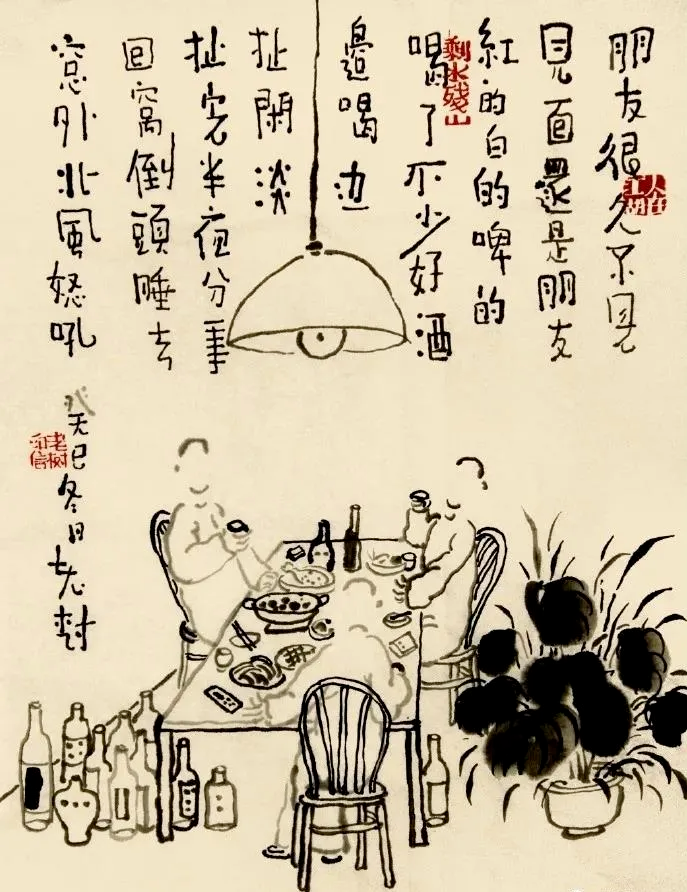 朋友很久不見
見面還是朋友
紅的白的啤的
喝了不少好酒
邊喝边
扯閑淡
扯完半夜分手
回窩倒頭睡去
窓外北風怒吼
癸巳冬日老樹
人在江湖
剩水殘山
老树